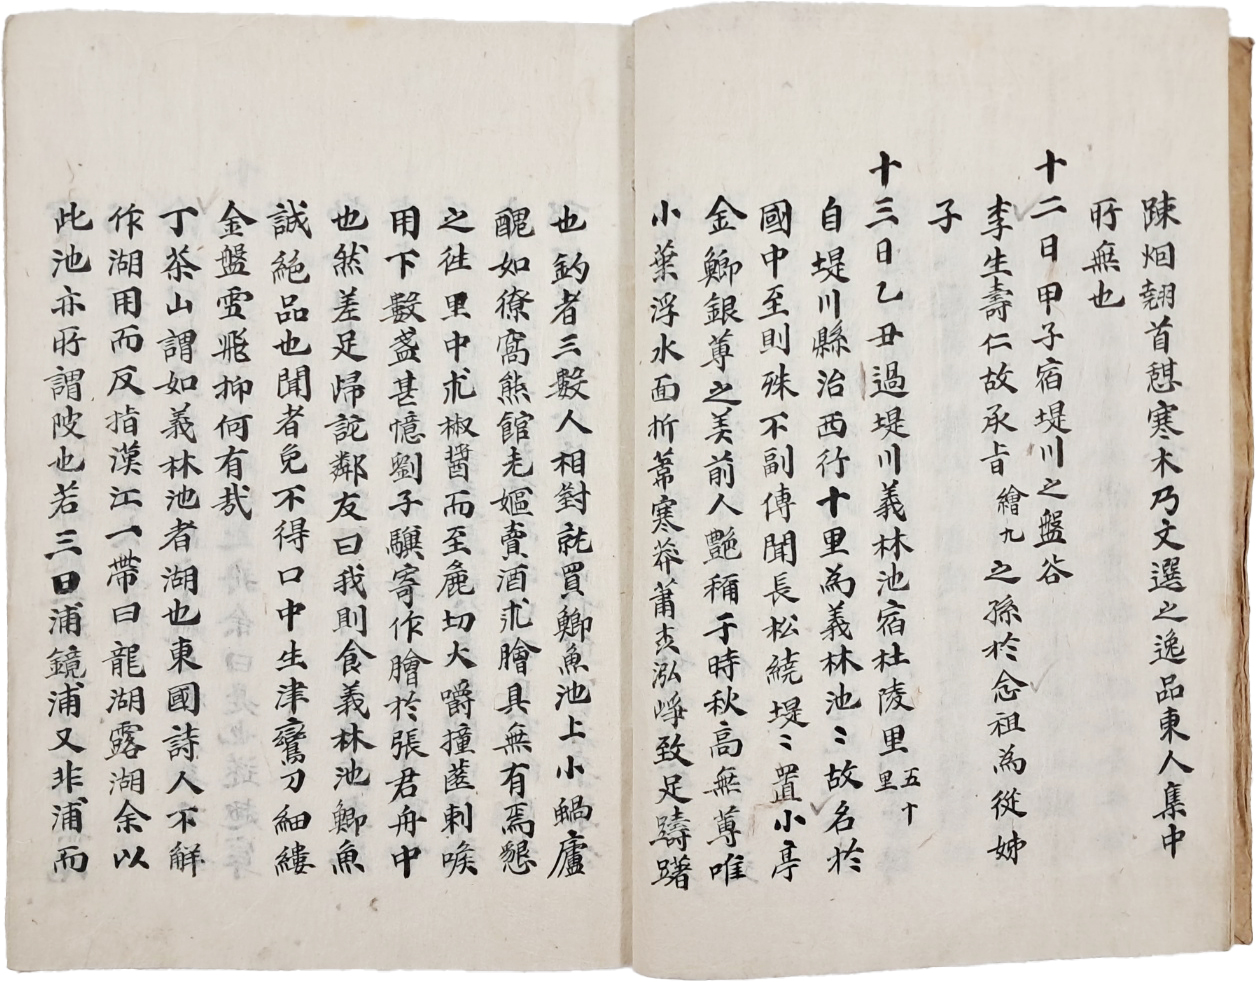 踈烟翹首憩寒木乃文選之逸品東人集中
所無也
十二日甲子宿堤川之盤谷
李生壽仁故承旨繪九之孫於念祖為從姊
子
十三日乙丑過堤川義林池宿杜陵里五十里
自堤川縣治西行十里為義林池〻故名於
國中至則殊不副傳聞長松繞堤〻置小亭
金鯽銀蓴之美前人艶稱于時秋高無蓴唯
小葉浮水面折葦寒莽蕭森泓崢致足躊躇
也釣者三數人相對就買鯽魚池上小蝸廬
醜如獠窩熊館老嫗賣酒求膾具無有焉懇
之徃里中求椒醬而至麁切大嚼撞薤刺喉
用下數盞甚憶劉子驥寄作膾於張君舟中
也然差足歸詑鄰友曰我則食義林池鯽魚
誠絕品也聞者免不得口中生津鸞刀細縷
金盤雪飛抑何有哉
丁茶山謂如義林池者湖也東國詩人不解
作湖用而反指漢江一帶曰龍湖露湖余以
此池亦所謂陂也若三日浦鏡浦又非浦而